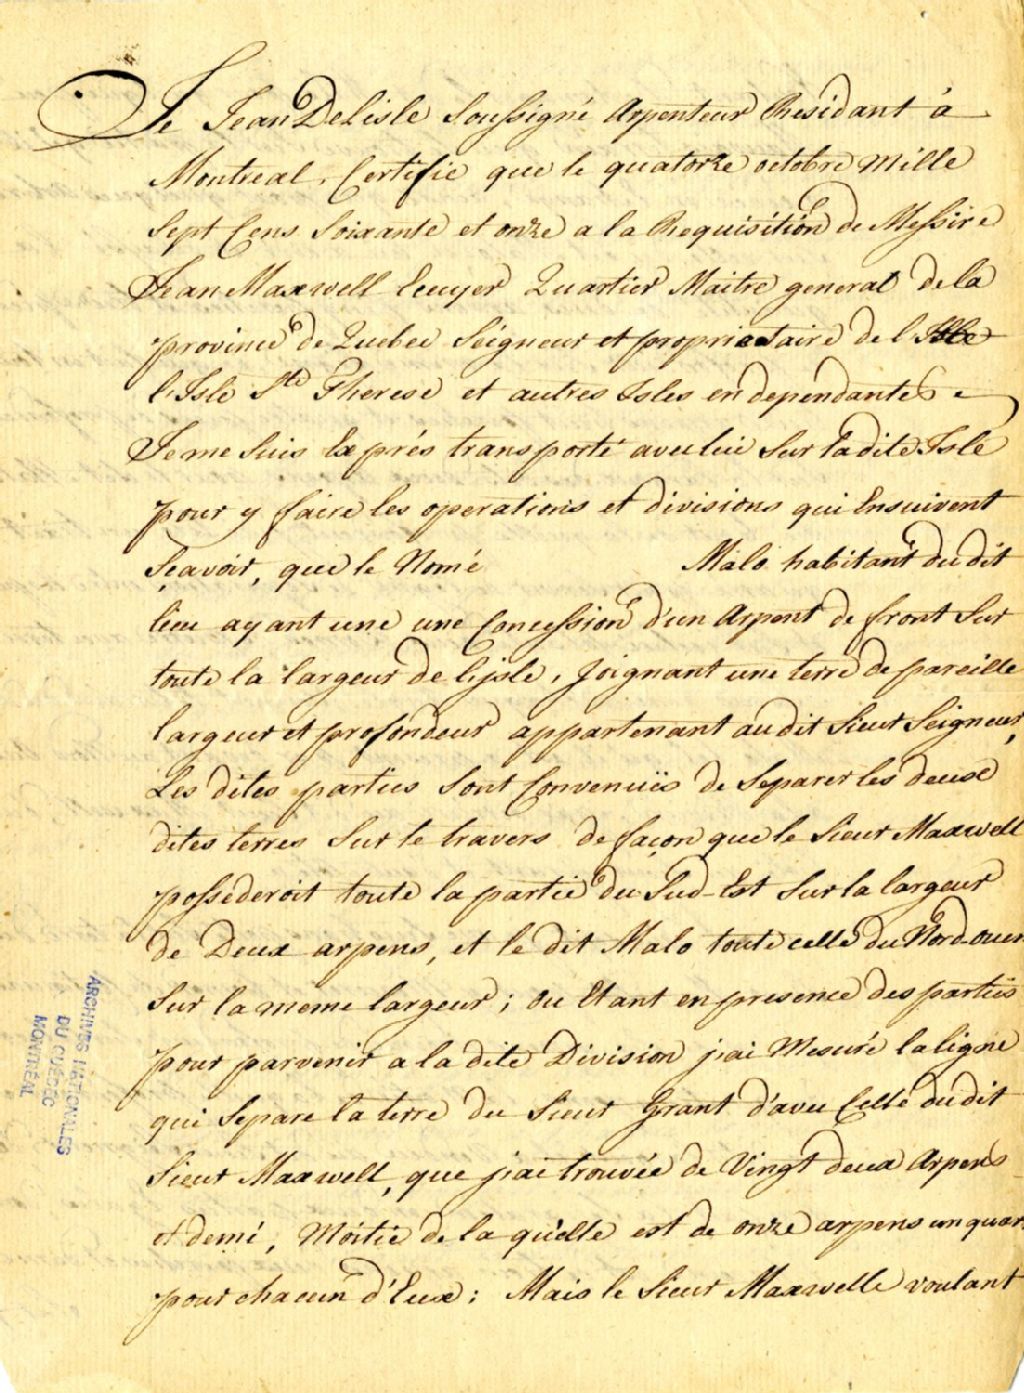 Je Jean DeLisle Soussigné Arpenteur Residant à
Montreal, Certifie que le quatorze octobre Mille
Sept Cens Soixante et onze a la Requisition de Messire
Jean Maxwell Ecuyer Quartier Maitre general de la
province de Quebec Seigneur et proprietaire de l'Isle
l'Isle Ste Therese et autres Isles en dependantes
Je me Suis Exprés transporté avec lui Sur ladite Isle
pour y faire les operations et divisions qui Ensuivent
Sçavoir, que le Nomé Malo habitant du dit
lieu ayant une une Concession d'un Arpent de front Sur
toute la largeur de l'isle, Joignant une terre de pareille
largeur et profondeur appartenant au dit Sieur Seigneur,
Les dites parties Sont Convenuës de Separer les deux
dites terres Sur le travers de façon que le Sieur Maxwell
possederoit toute la partie du Sud-Est Sur la largeur
de Deux arpens, et le dit Malo toute celle du Nord ouest
Sur la meme largeur; ou Etant en presence des parties
pour parvenir a la dite Division j'ai Mesuré la ligne
qui Separe la terre du Sieur Grant d'avec Celle du dit
Sieur Maxwell, que j'ai trouvée de Vingt deux Arpens
et demi, Moitié de la quelle est de onze arpens un quar
pour chacun d'Eux: Mais le Sieur Maxwelle voulant
ARCHIVES NATIONALES
DU QUÉBEC
MONTRÉAL